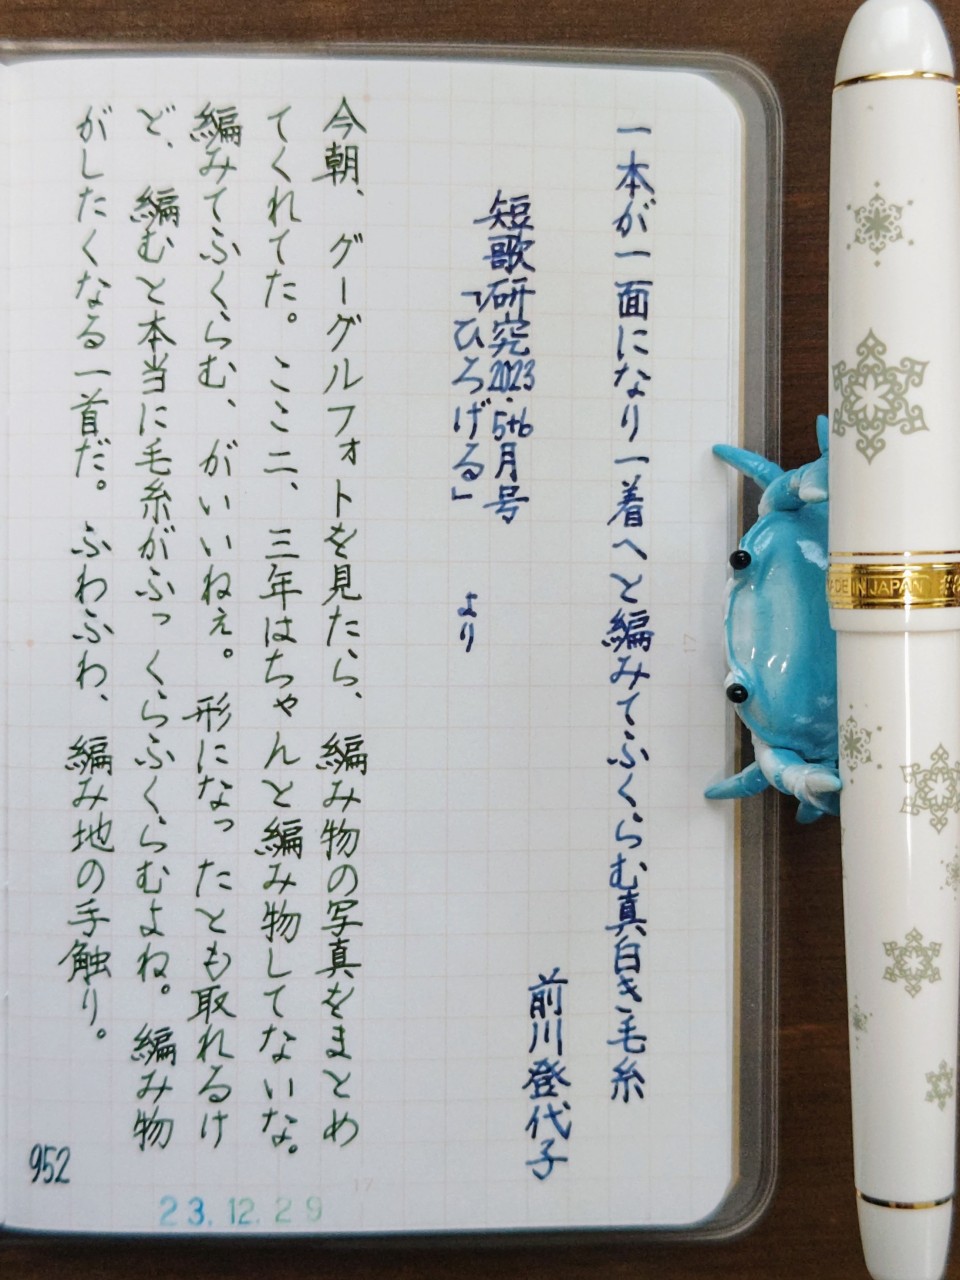 一本が一面になり一着へと編みてふくらむ真白き毛糸
前川登代子
短歌研究2023.5+6月号
「ひろげる」 より
今朝、グーグルフォトを見たら、編み物の写真をまとめ
てくれてた。ここ二、三年はちゃんと編み物してないな。
編みてふくらむ、がいいねぇ。形になったとも取れるけ
ど、編むと本当に毛糸がふっくらふくらむよね。編み物
がしたくなる一首だ。ふわふわ、編み地の手触り。
952
23.12.29
17
17
MADE IN JAPAN